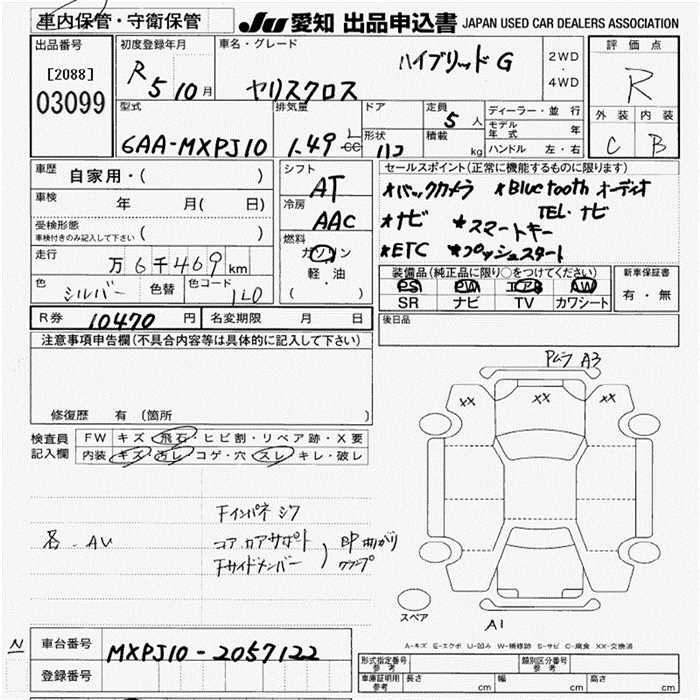 車内保管・守衛保管
JU 愛知 出品申込書 JAPAN USED CAR DEALERS ASSOCIATION
出品番号
[2088]
03099
初度登録年月
R 5 10 月
車名・グレード
ヤリスクロス ハイブリッド G
2WD
4WD
評価点
R
外装 内装
C B
型式
6AA-MXPJ10
排気量
1.49 L cc
ドア
形状
定員
5 人
積載
kg
ディーラー・並行
モデル年式 年
ハンドル 左・右
車歴
自家用・( )
車検
年 月( 日)
受検形態
車検付きのみ記入して下さい ( )
走行
万 6 千 469 km
色 シルバー 色替 色コード 1L0
シフト
AT
冷房
AAC
燃料
ガソリン
軽・油
( )
セールスポイント(正常に機能するものに限ります)
*バックカメラ *Bluetooth オーディオ
TEL・ナビ
*ナビ *スマートキー
*ETC *プッシュスタート
装備品(純正品に限り○をつけてください)
PS PW エアB AW
SR ナビ TV カワシート
新車保証書
有・無
R券 10470 円 名変期限 月 日
後日品
注意事項申告欄(不具合内容等は具体的に記入して下さい)
修復歴 有 (箇所 )
検査員記入欄
FW キズ・飛石・ヒビ割・リペア跡・X要
内装 キズ・汚レ・コゲ・穴・スレ・キレ・破レ
Fインパネ
コアサポート
Fサイドメンバー
曲がり
AU
A3
XX XX XX
スペア
A1
A-キズ E-エクボ U-凹み W-補修跡 S-サビ C-腐食 XX-交換済
N
車台番号 MXPJ10-2057122
登録番号
形式指定番号 参考
類別区分番号 参考
車庫証明用 参考 長さ cm 幅 cm 高さ cm